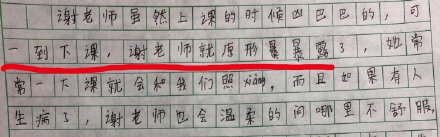 谢老师虽然上课的时候凶巴巴的,可
一到下课,谢老师就原形暴暴露了,她常
常一下课就会和我们照xiàng,而且如果有人
生病了,谢老师也会温柔的问哪里不舒服,